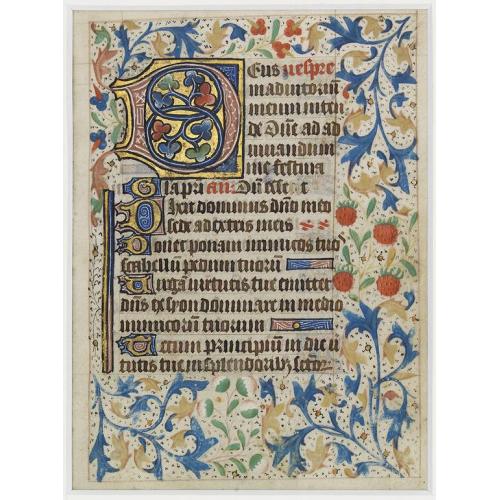 Deus vespre
in adiutoriū
meum inten
de Dñe ad ad
iuuandum
me festina
Gla pri añ Dñi est
Dixit dominus dño meo
sede ad extris meis
Donec ponam inimicos tuos
scabellū pedum tuorum
Virgā uirtutis tue emittet
dñs ex syon dominare in medio
inimicorū tuorum
Tecum principium in die uir
tutis tue in splendoribȝ sctōr